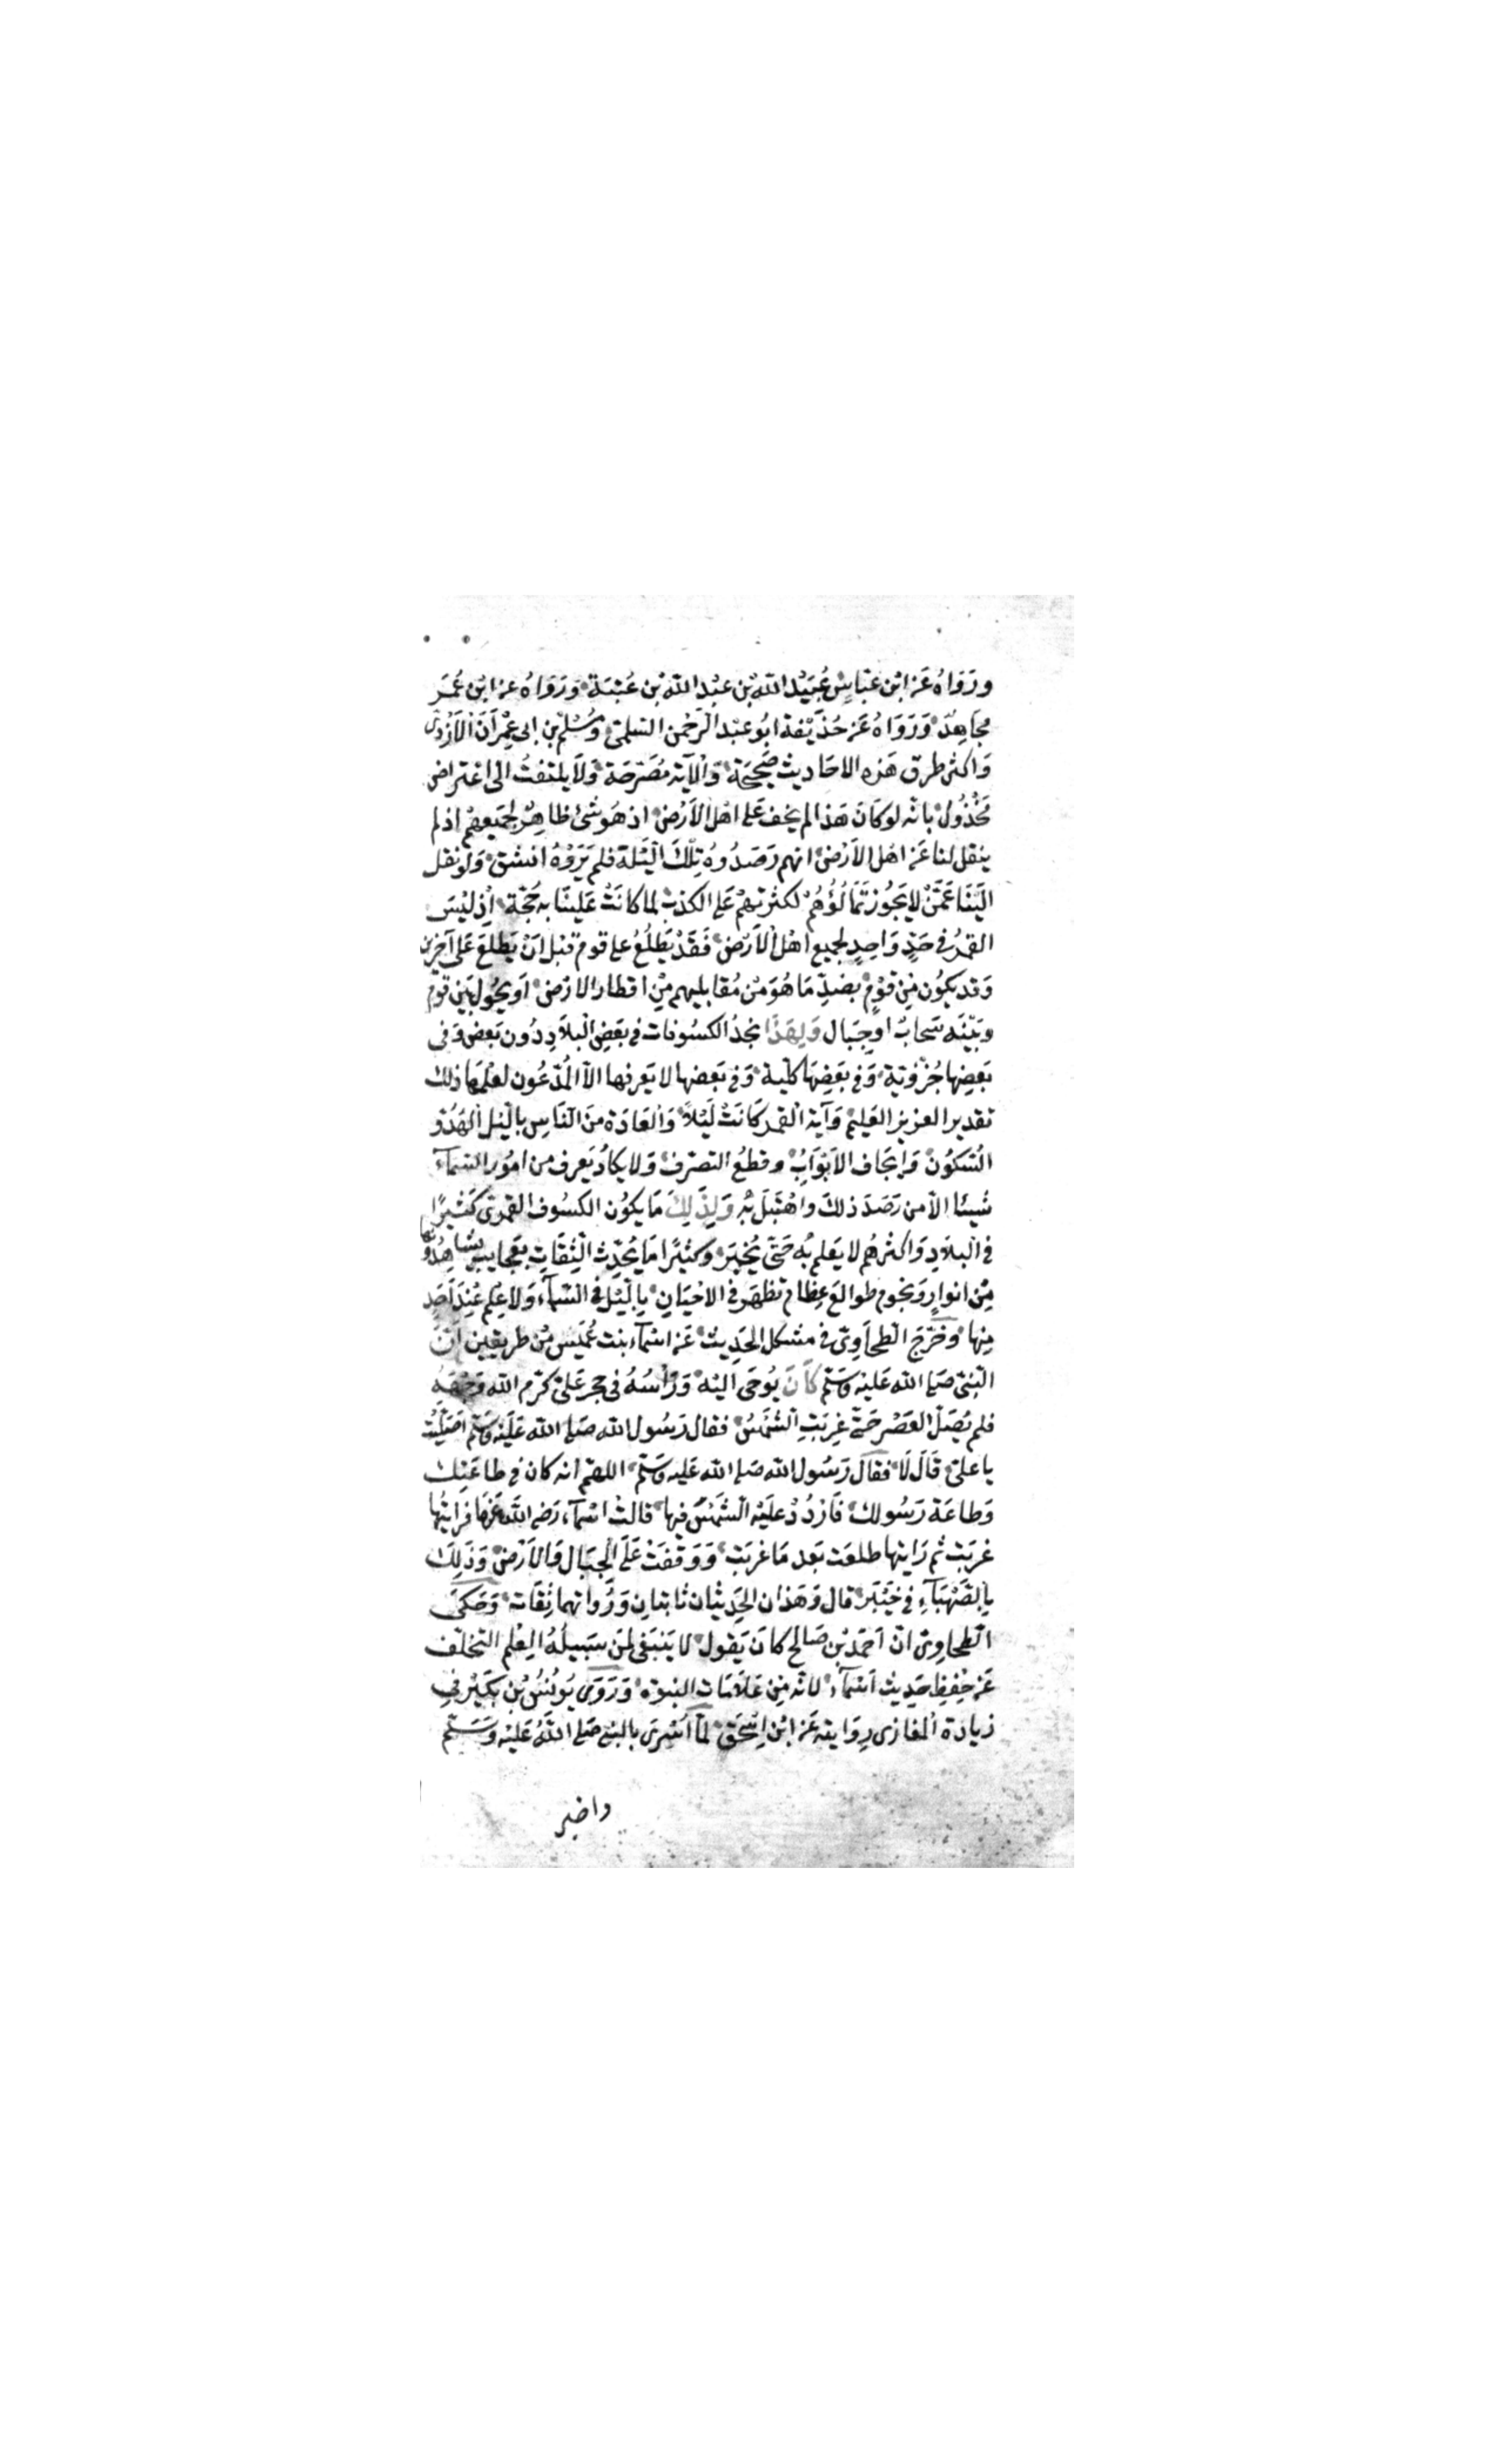 ورَوَاهُ عَن ابْن عَبّاسٍ عُبَيْدُ اللّٰه بْن عَبْدِ اللّٰه بْن عُتْبَة وَرَوَاهُ عن ابْن عُمَر
مُجَاهِدٌ وَرَوَاهُ عَن حُذَيْفة ابُو عَبْد الرّحْمن السّلمىّ وَمُسْلِم بن ابى عِمْرَانَ الْاَزْدىّ
وَاكثر طرق هَذه الاحَاديث صَحِيحَة وَالْآية مُصَرّحَة وَلَا يلتفتُ الى اعْتراض
مَخْذُولٍ بانّه لو كَانَ هَذا لم يخف عَلى اهْل الاَرْض اذ هُو شئ ظاهِرٌ لجميعِهم اذ لم
ينقل لنا عَن اهْل الاَرْض انهم رَصَدُوهُ تِلْكَ الّيْلة فلم يَرَوْهُ انشق وَلو نقل
الَيْنَا عَمَّنْ لا يَجُوز تَمَالُؤُهُمْ لكثرتهمْ عَلى الكذب لما كانَتْ عَلينَا به حُجّة اِذ ليْسَ
القمَرُ فى حَدٍّ وَاحِدٍ لجميع اهْل الاَرْض فَقَدْ يَطْلُعُ على قوم قبْل انْ يَطلعَ عَلى آخرين
وَقد يكُون مِن قوْمٍ بضدّ مَا هُوَ مِنْ مُقابليهم مِنْ اقطار الارْض اَو يحُول بَيْن قوْم
وبَيْنَه سَحابٌ اوجِبَال وَلِهَذَا نجدُ الكسُوفات فى بعَض الْبلاَدِ دُون بَعض وَفى
بَعضِها جُزْئِيّة وَفى بَعضِهَا كلّية وَفى بَعضها لا يَعرفها الاّ الْمُدّعُون لعِلْمِهَا ذلك
تقدير العزيز العَليم وَآية الْقمر كَانَتْ لَيْلاً وَالْعَادَة مِنَ النّاسِ بالّيْل الْهُدُوّ
السّكونُ وَايجاف الاَبْوَابِ وقطعُ التصرّف وَلا يكادُ يَعرف من امُور السّمآء
شيئا الاّ من رَصَدَ ذلكَ واهْتَبَلَ به وَلِذَلِكَ مَا يكوُن الكسُوف القمرىّ كَثيرًا
فى الْبلاَدِ وَاكثرهُم لا يَعلم به حَتّى يُخْبَر وَكثيْرًا مَا يُحدّث الثِّقَات بعَجايب يُشاهِدُونَها
مِنْ انوارٍ وَنجوم طوالعَ عِظام تظهَر فى الاحْيَانِ بالّيْل فى السّمآء وَلا عِلم عِنْدَ اَحَدٍ
مِنها وَخَرّجَ الطّحاَوىّ فى مشكل الحَدِيث عَن اسْمآء بنت عُمَيْس مِن طريقين اَنّ
النّبىّ صَلى الله عَليْه وَسَلّم كَانَ يُوحَى الَيْه وَرَأسُهُ فى حِجر عَلىّ كرّم الله وَجْهَهُ
فلم يُصَلّ الْعَصْر حَتّى غربَتِ الشّمْسُ فقال رَسُول الله صَلى الله عَلَيْه وَسَلّم اَصَلّيْتَ
يا علىّ قَالَ لَا فقَالَ رَسُول الله صَلى الله عَليه وَسَلّم اللهمّ انه كان فى طاعَتِك
وَطاعَة رَسُولك فَارْدُدْ عَلَيْه الشّمْسَ فيها قالتْ اسْمآء رَضى اللّٰه عَنْهَا فرايتُها
غربَت ثم رَايتها طلعَت بَعد مَا غربَت وَوَقفَتْ عَلَى الجبَال وَالارْض وَذلِكَ
بِالصّهْبَآءِ فى خَيْبَر قال وَهَذان الحَدِيثان ثابتانِ وَرُواتهما ثِقَات وَحَكى
الطّحاوِىّ انّ اَحمَدَ بْن صَالح كانَ يَقول لا يَنبَغى لمَن سَبيلُهُ الْعِلم التخلّف
عَن حِفْظِ حَدِيث اَسْمآء لانّه مِن عَلاَمَات النبوّة وَرَوَى يُونُسُ بْن بُكَيْر فى
زيادة الْمغازى رِوَايته عَن ابْن اِسْحَق لَمّا اُسْرِىَ بالنبى صَلى اللّٰهُ عَليْه وَسَلّم
واخبر